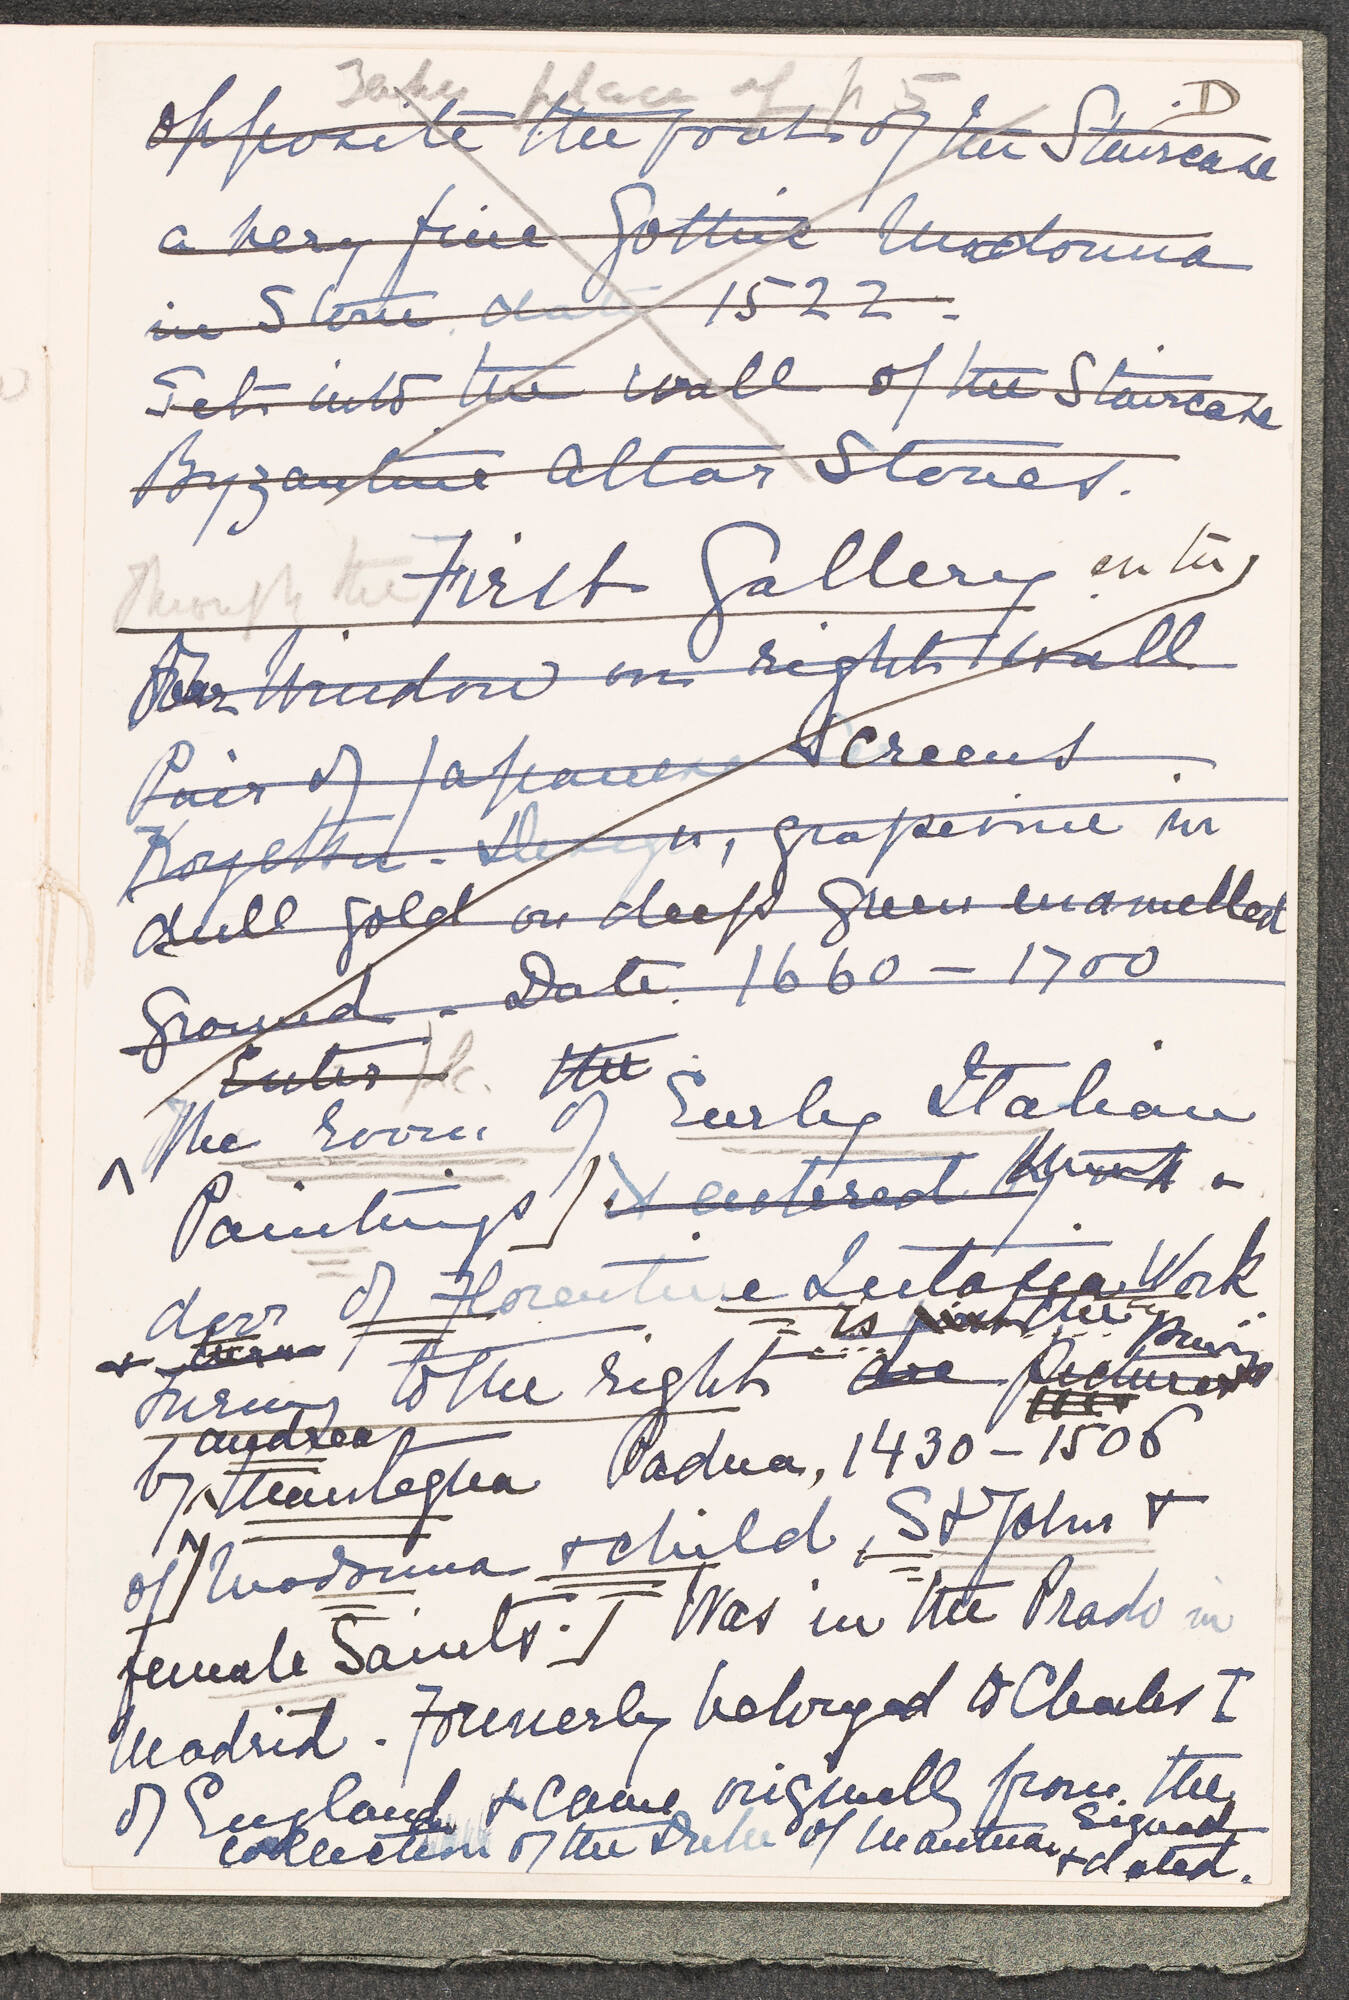 Takes place of p 5
D
opposite the foot of the Staircase
a very fine Gothic Madonna
in Stone date 1522 -
Set into the wall of the Staircase
Byzantine Altar Stones.
First Gallery
Through the
Window on right wall
Pair of Japanese Screens
Koyetsu - Design, grapevine in
dull gold on deep green enamelled
ground - Date 1660 - 1700
Enter the
The room of Early Italian
Paintings is entered through a
door of Florentine Intarsia Work
is the
+ turn
turning to the right are pictures
Andrea
by Mantegna Padua, 1430 - 1506
of Madonna + child, St John +
female Saints. Was in the Prado in
Madrid. Formerly belonged to Charles I
of England + came originally from the
collection of the Duke of Mantua Signed
+ dated.